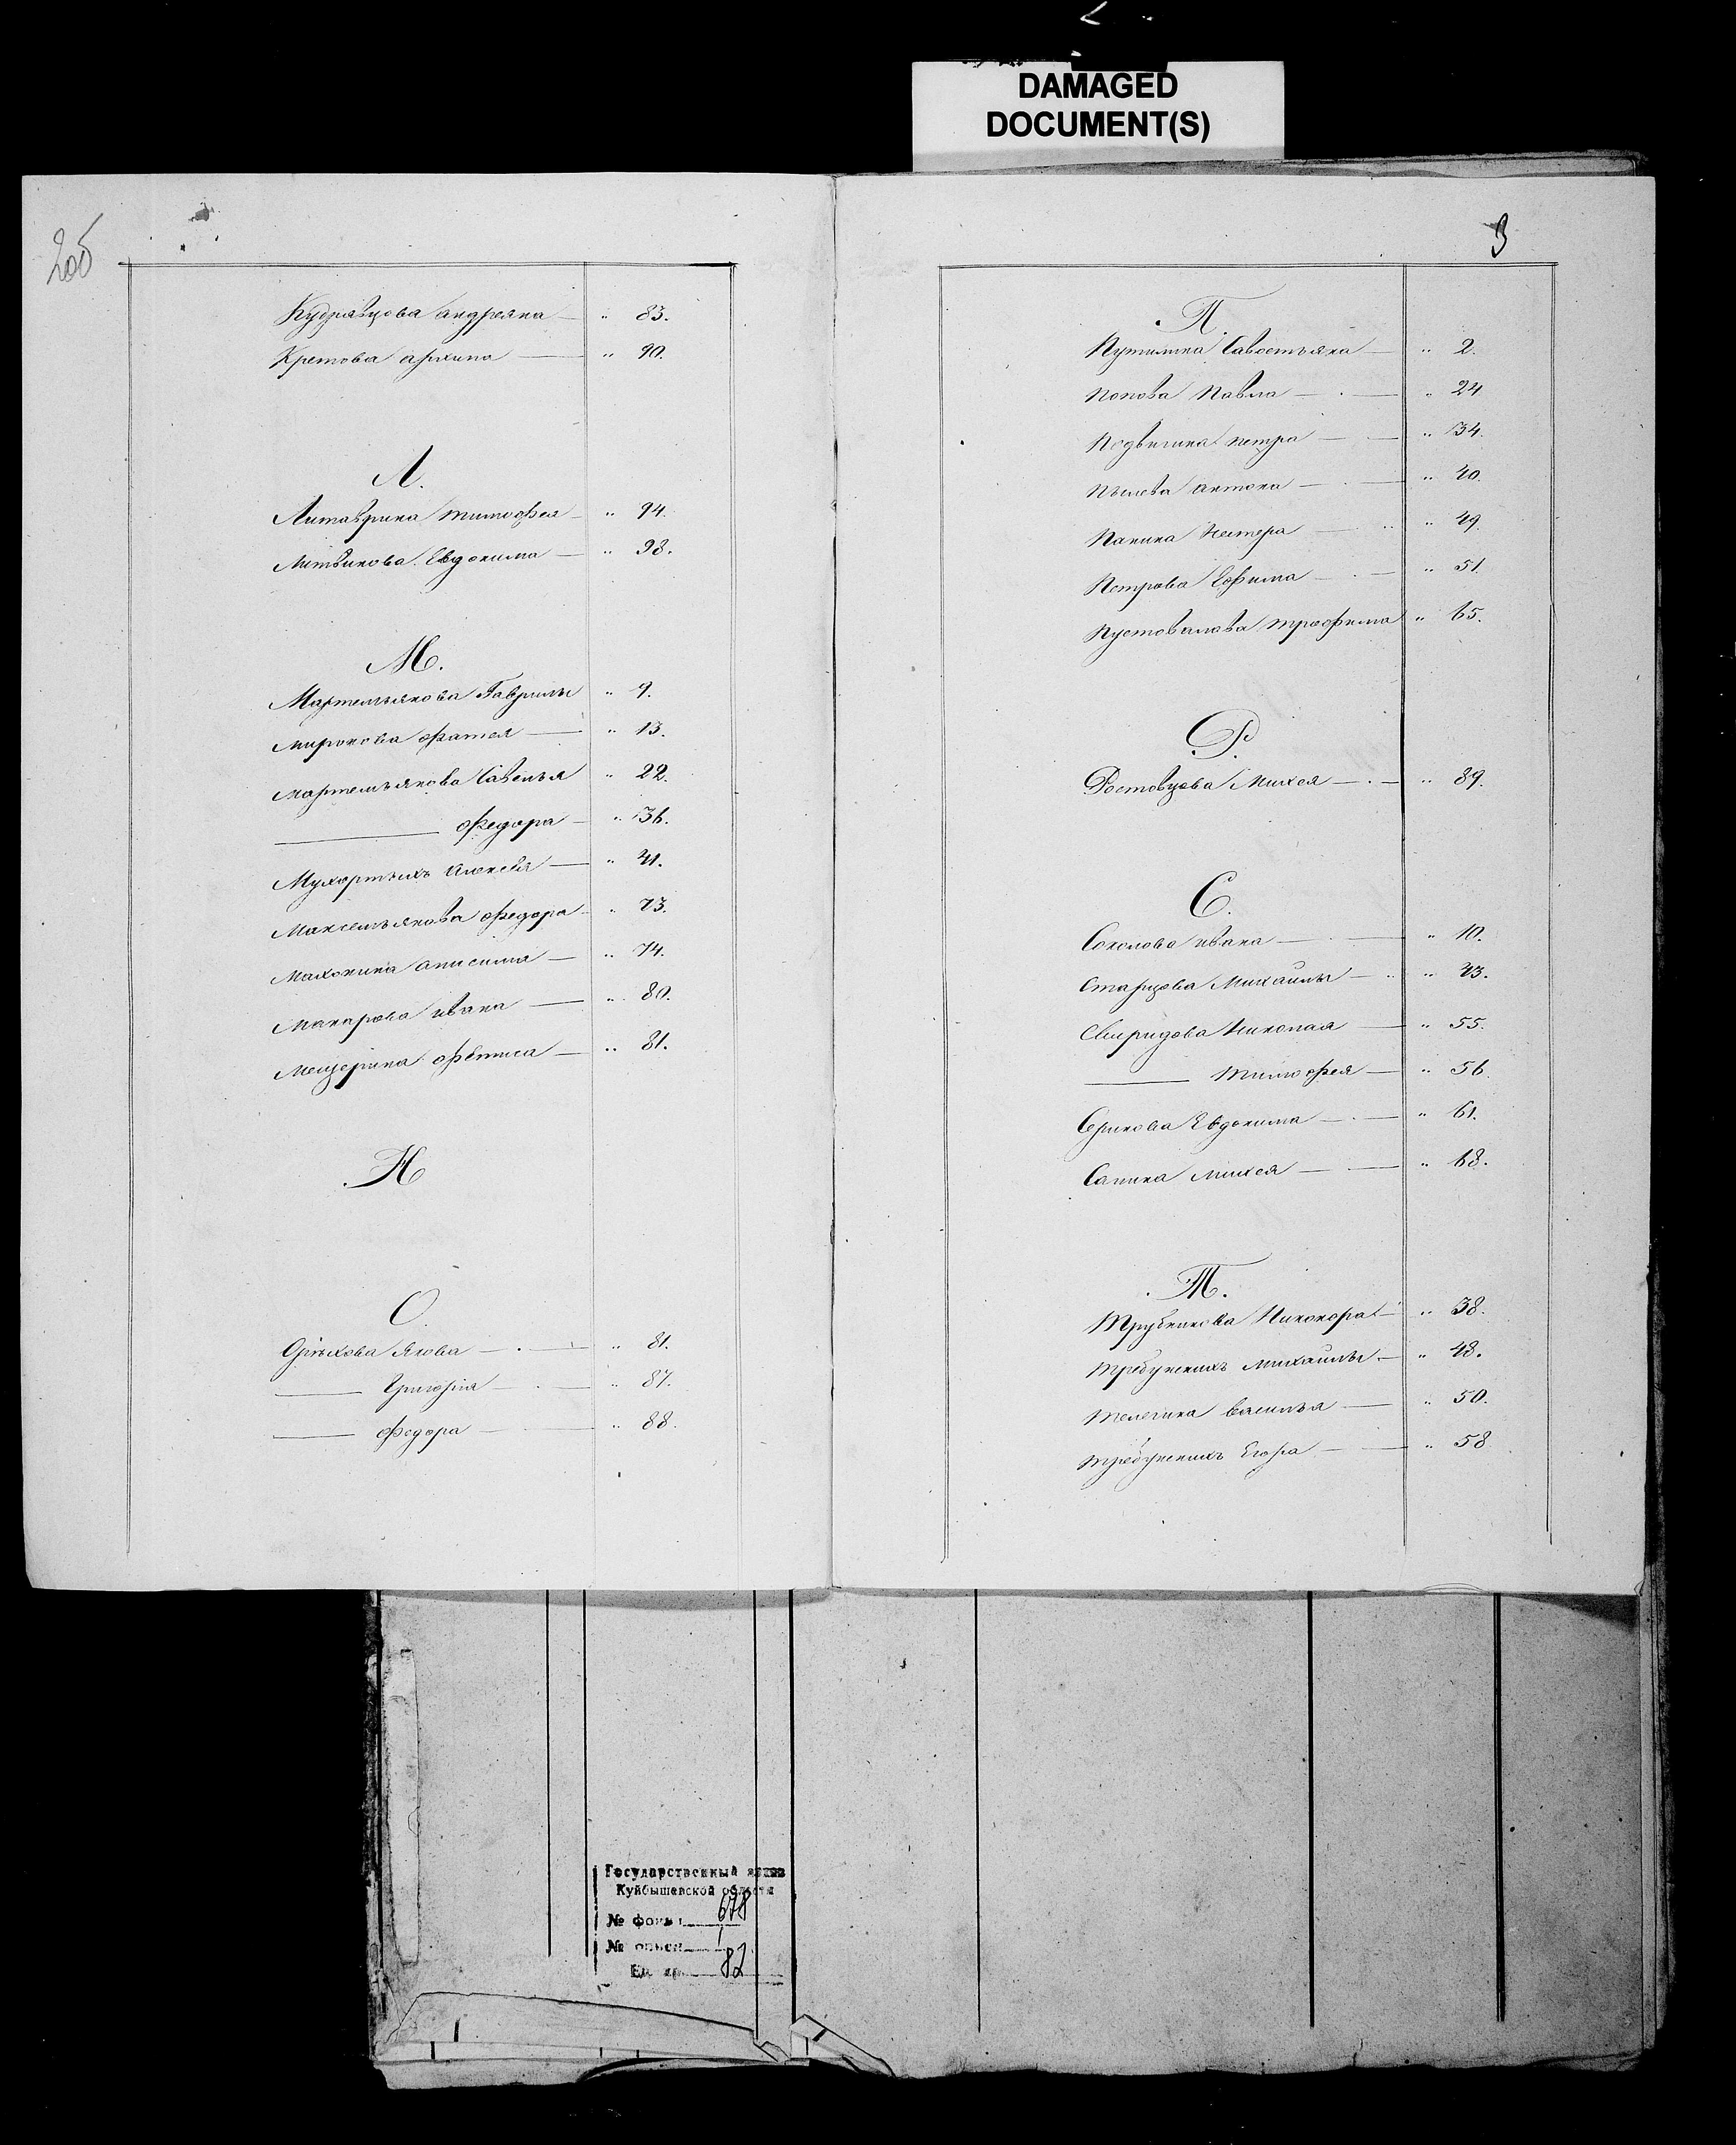 DAMAGED
DOCUMENT(S)
2об
Кудравцова андреяна — " 83.
Кретова архипа — " 90.
Л.
Литаврина тимофея — " 94.
Литвинова Евдокима — " 98.
М.
Мартемьянова Гаврилы " 9.
миронова фатея — " 13.
мартемьянова Савелья " 22.
— федора — " 36.
Мухортыхъ алексѣя — " 41.
Максемьянова федора " 73.
махонина анисима — " 74.
макарова ивана — " 80.
мещерина фетиса — " 81.
Н
О.
Орѣхова Якова — " 81.
— Григорiя — " 87.
— федора — " 88.
3
П.
Путилина Савостьяна — " 2.
попова Павла — " 24
подвигина петра — " 34.
пылева антона — " 40.
панина Нестера — " 49.
Петрова Ефима — " 51.
Пустовалова трофима " 65.
Р.
Ростовцова Михея — " 89.
С.
Соколова ивана — " 10.
Старцова Михайлы — " 43.
Свиридова Николая — " 55.
— тимофея — " 56.
Серикова Евдокима — " 61.
Сапина михея — " 68.
Т.
трубникова Никонора — " 38.
требунскихъ михайлы — " 48.
телегина василья — " 50.
требунскихъ Егора — " 58
Государственный архив
Куйбышевской области
№ фонда 678
№ описи 1
Ед. хр. 82